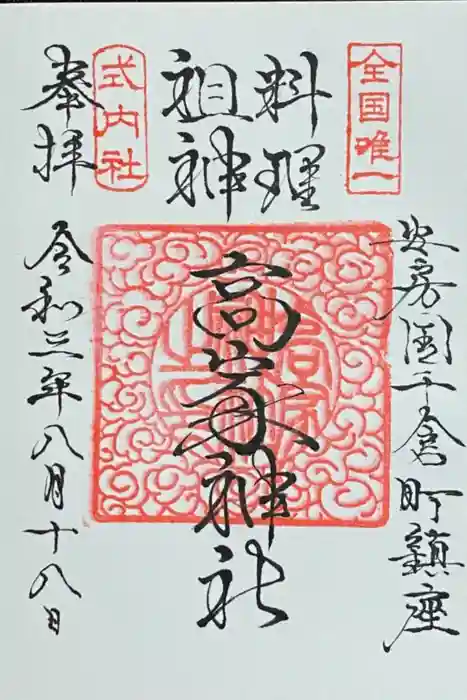 全国唯一
安房国千倉町鎮座
料理
祖神
高家神社
式内社
奉拝
令和三年八月十八日